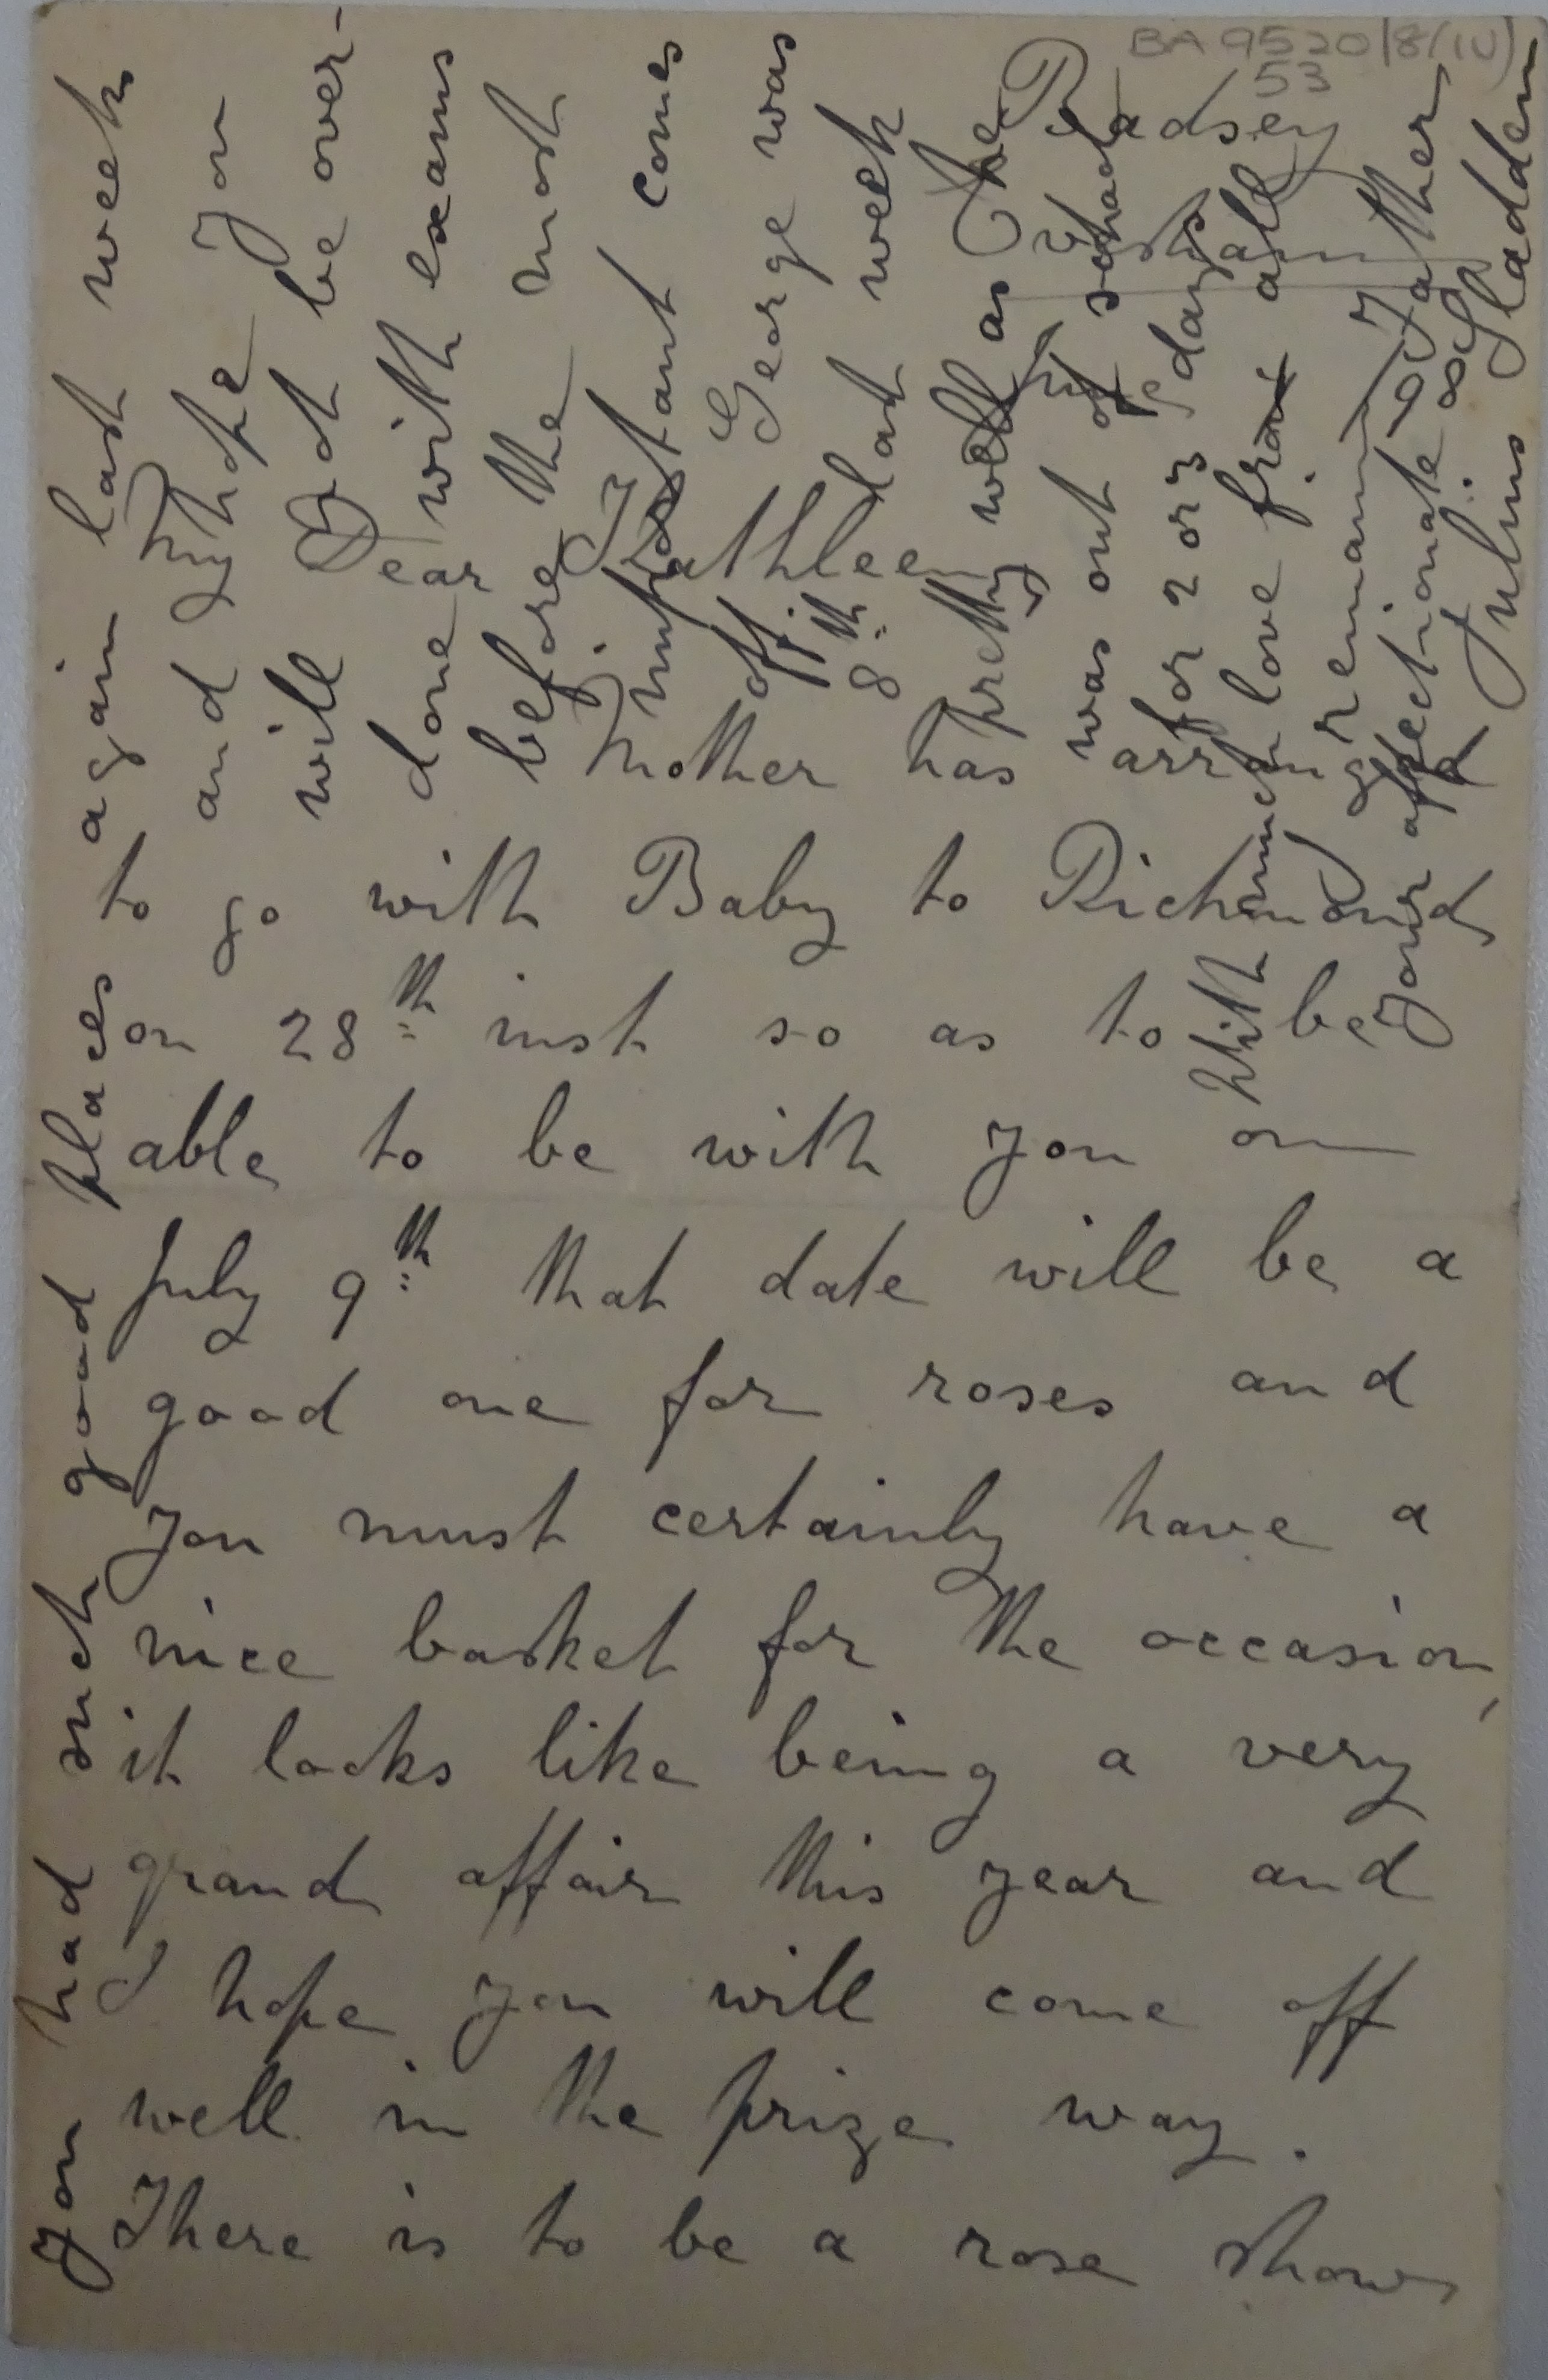 BA 9520/8/(IV)
53
The
Badsey
Evesham
Dear Kathleen
Mother has arranged
to go with Baby to Richmond
on 28th inst so as to be
able to be with you on
July 9th that date will be a
good one for roses and
you must certainly have a
nice basket for the occasion,
it looks like being a very
grand affair this year and
I hope you will come off
well in the prize way.
There is to be a rose show
you had such good places again last week
and hope you
will not be over-
done with exams
before the most
important comes
off. George was
8th last week
pretty well as he
was out of school
for 2 or 3 days
With much love from all
remaining
Your affectionate Father
Julius Sladden